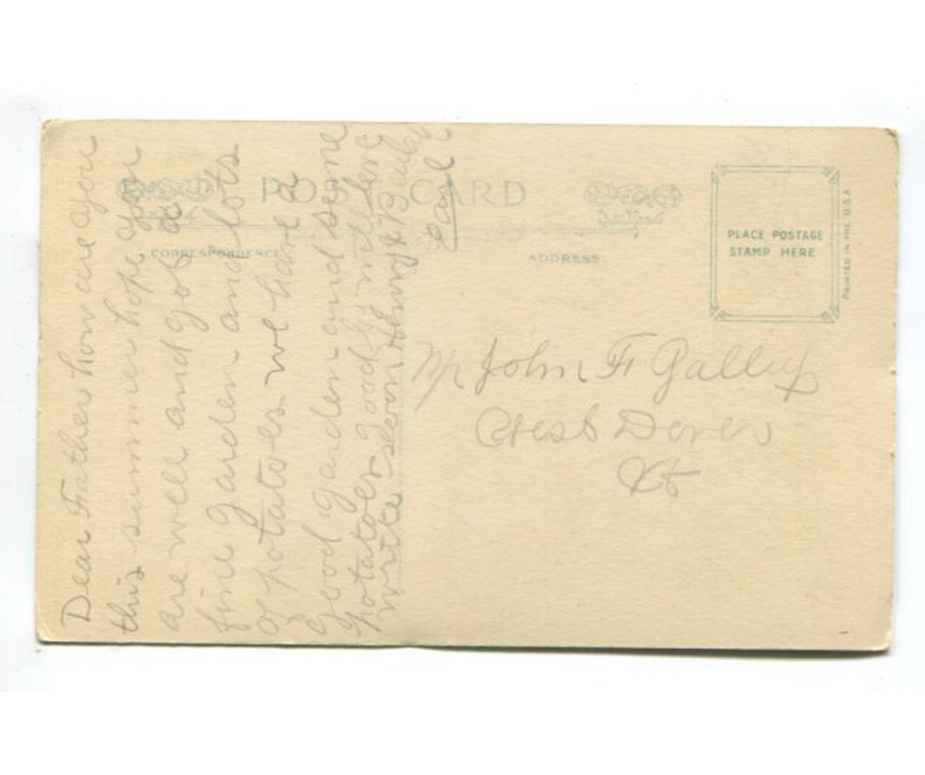 POST CARD
CORRESPONDENCE
ADDRESS
PLACE POSTAGE
STAMP HERE
PRINTED IN THE U.S.A
Dear Father how are you
this summer hope you
are well and got a
fine garden and lots
of potatoes we have a
good garden and some
potatoes good by
write soon
Pearl
Mr John F Gallup
West Dover
Vt